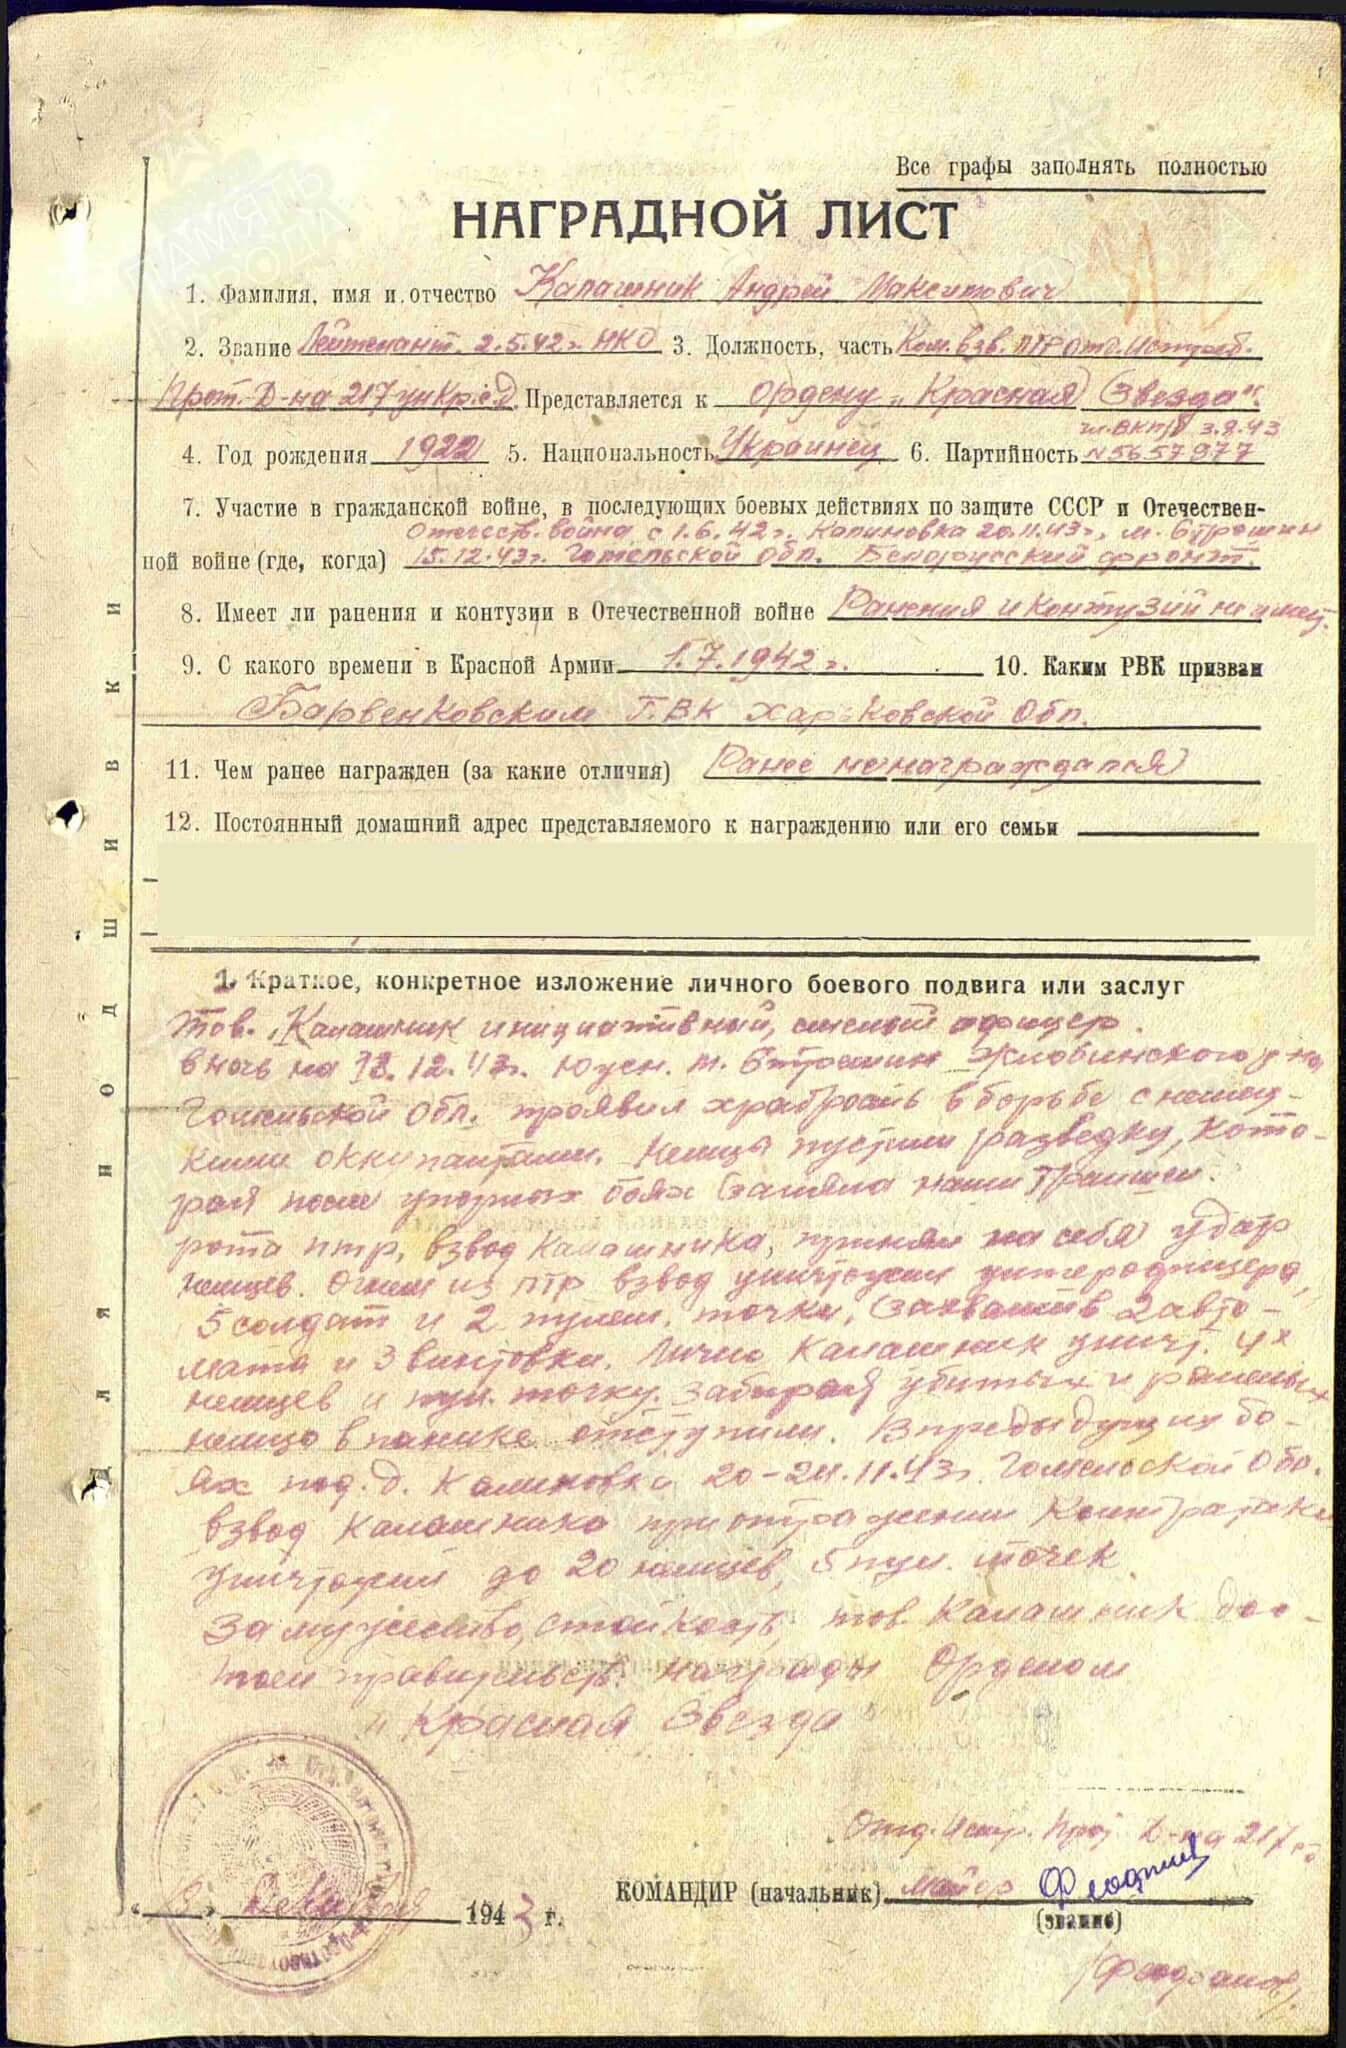 Все графы заполнять полностью
НАГРАДНОЙ ЛИСТ
1. Фамилия, имя и отчество Калашник Андрей Максимович
2. Звание Лейтенант 2.5.42г. НКО 3. Должность, часть Ком. взв. ПТР Отд. Истреб.
Прот. Д-на 217 Представляется к ордену „Красная Звезда"
чл. ВКП/б 3.9.43
4. Год рождения 1922 5. Национальность Украинец 6. Партийность №5657977
7. Участие в гражданской войне, в последующих боевых действиях по защите СССР и Отечествен-
Отечеств. война с 1.6.42г. Калиновка 20.11.43г., м. Стрешин
ной войне (где, когда) 15.12.43г. Гомельской обл. Белорусский фронт.
8. Имеет ли ранения и контузии в Отечественной войне Ранения и контузий не имеет.
9. С какого времени в Красной Армии 1.7.1942г. 10. Каким РВК призван
Барвенковским РВК Харьковской Обл.
11. Чем ранее награжден (за какие отличия) Ранее не награждался
12. Постоянный домашний адрес представляемого к награждению или его семьи
1. Краткое, конкретное изложение личного боевого подвига или заслуг
Тов. Калашник инициативный, смелый офицер.
в ночь на 12.43г. Южн. м. Стрешин Жлобинского р-на
Гомельской обл. проявил храбрость в борьбе с немец-
кими оккупантами. Немцы пустили разведку, кото-
рая после упорных боях заняла наши траншеи.
рота птр, взвод Калашника, принял на себя удар
немцев. Огнем из ПТР взвод уничтожил унтерофицера,
5 солдат и 2 пулем. точки, захватив 2 авто-
мата и 3 винтовки. Лично Калашник уничт. 4х
немцев и пул. точку. Забирая убитых и раненых
немцы в панике отступили. В предыдущих бо-
ях под. д. Калиновка 20-24.11.43г. Гомельской Обл.
взвод Калашника при отражении Контратаки
уничтожил до 20 немцев, 5 пул. точек
За мужество, стойкость, тов. Калашник дос-
тоен правительств. награды Орденом
„Красная Звезда"
Отд. Истр. Прот Д-на 217
КОМАНДИР (начальник) майор
(звание)
декабря 1943 г.
Для подшивки
ПАМЯТЬ НАРОДА